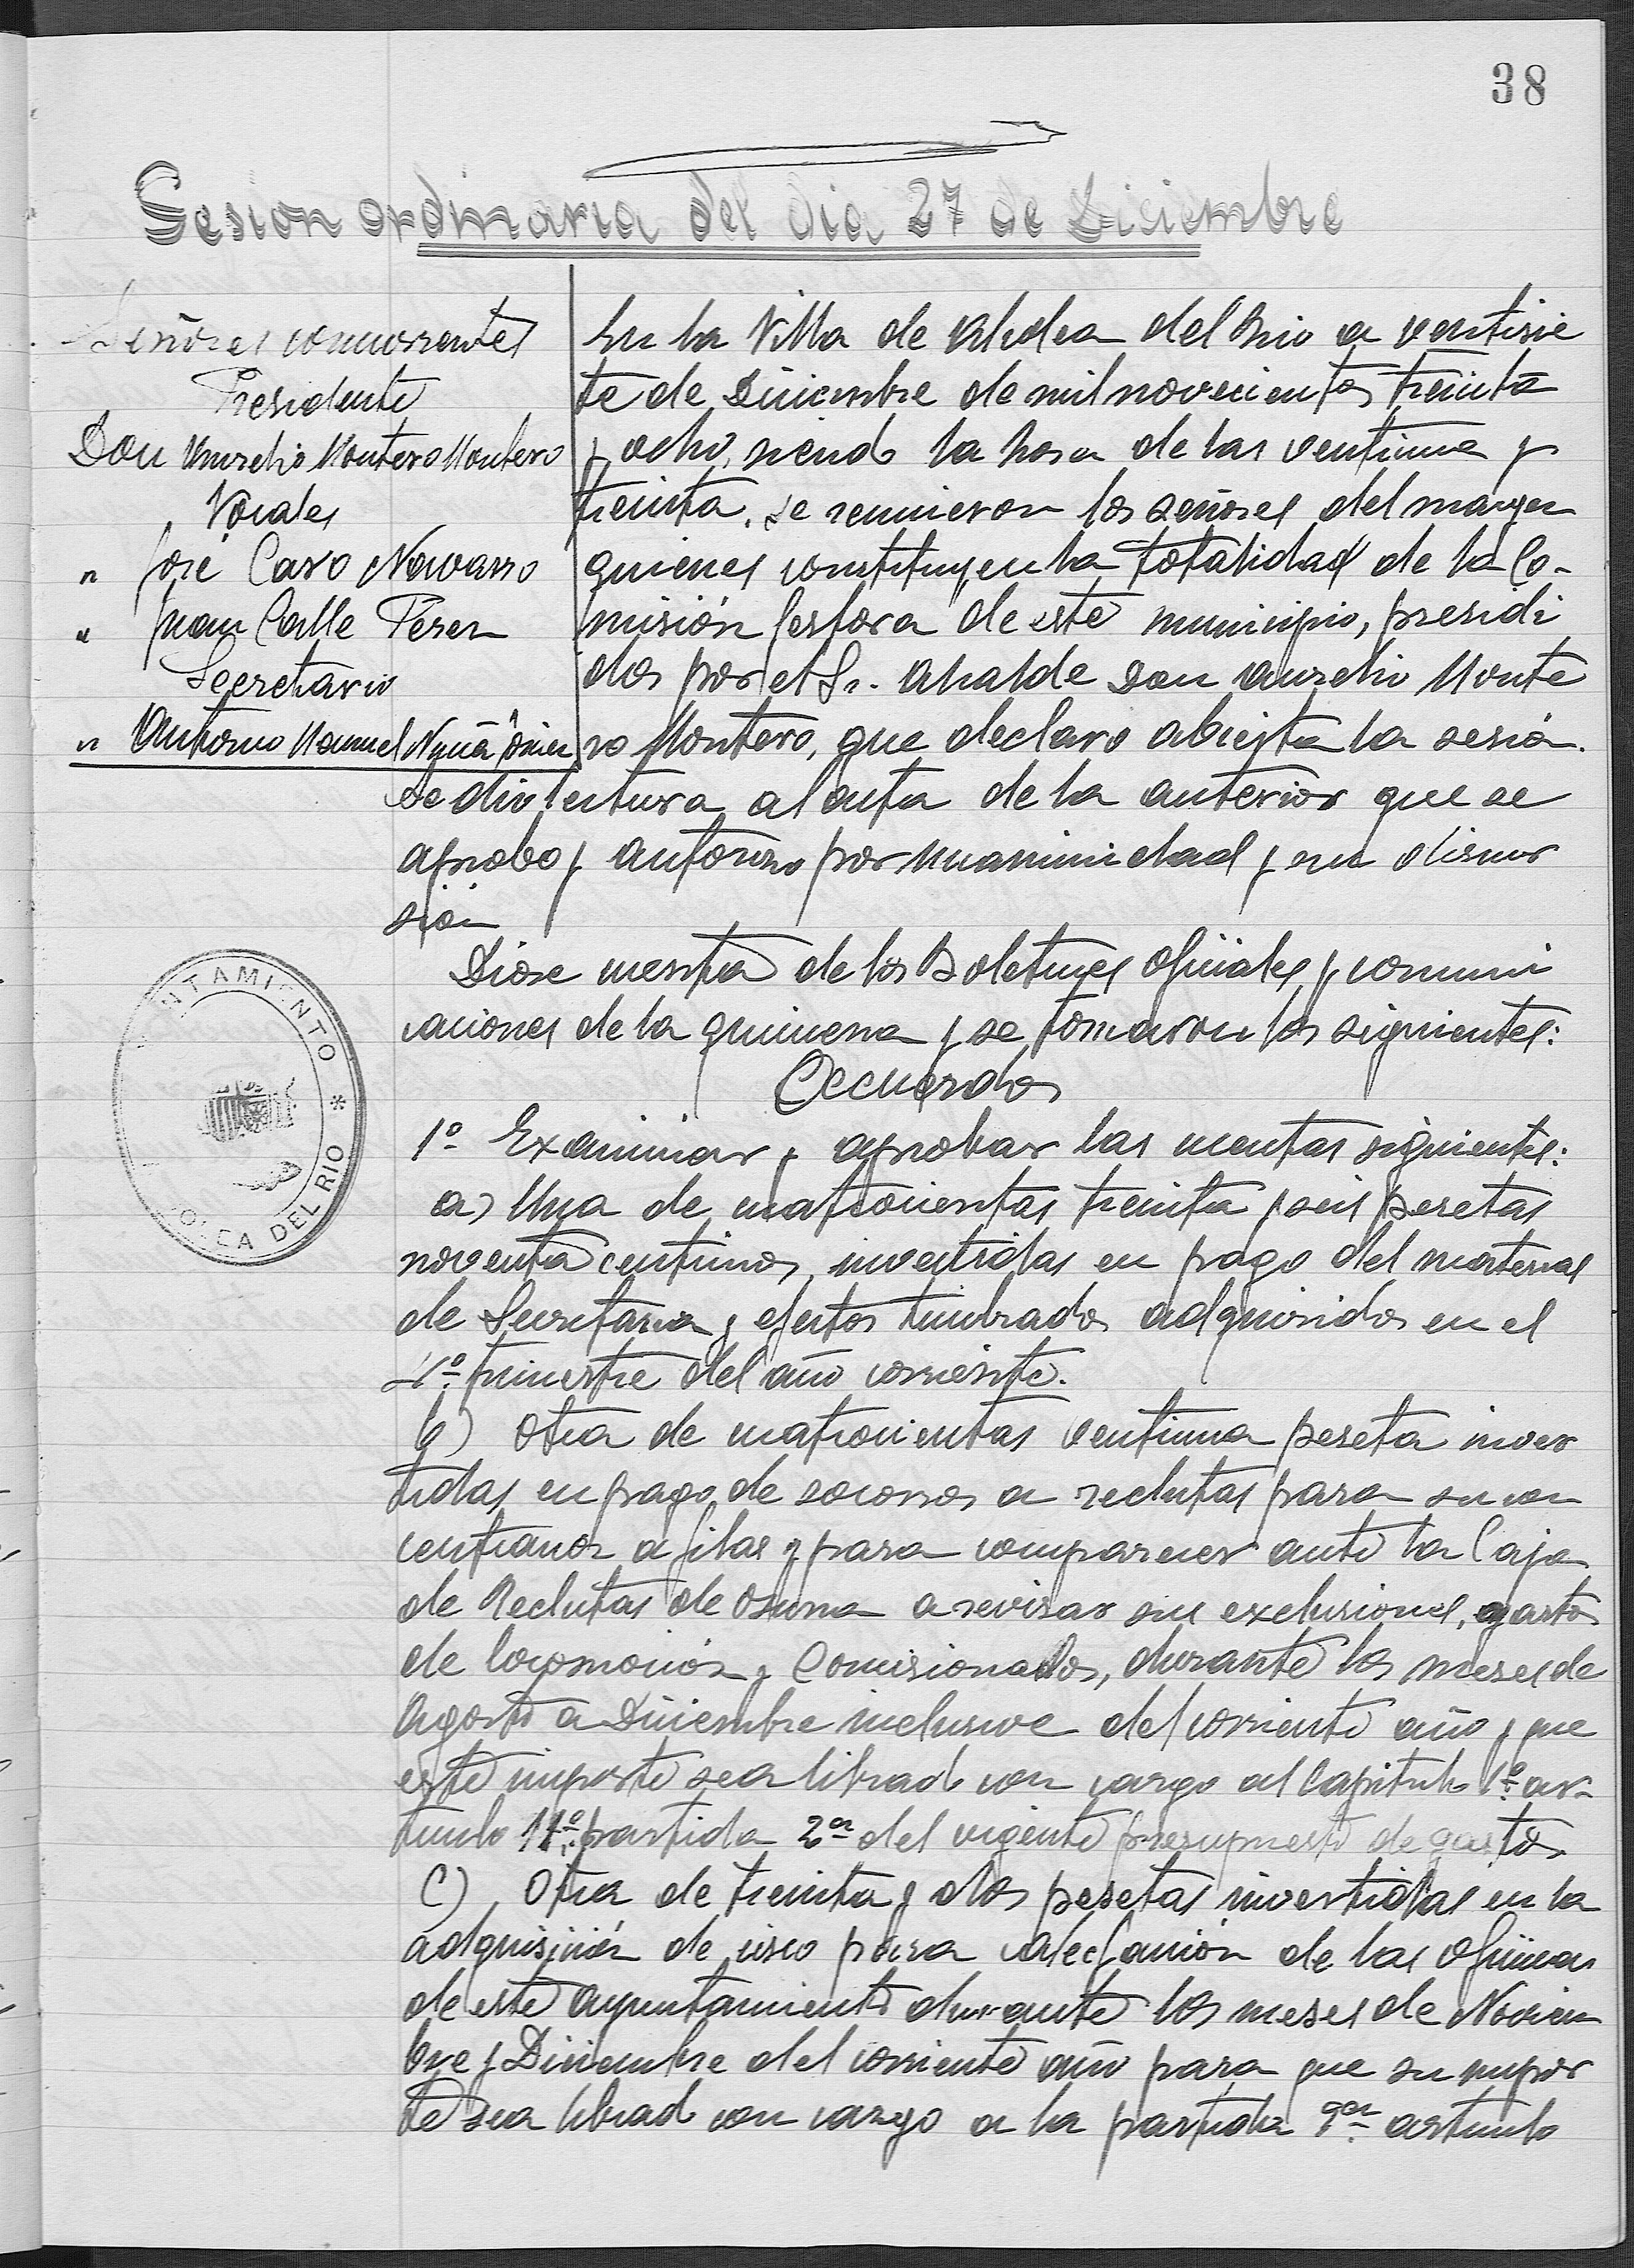 38
Sesion ordinaria del dia 27 de Diciembre
Señores concurrentes
Presidente
Don Aurelio Montero Montero
Vocales
" José Caro Navarro
" Juan Calle Perez
Secretario
" Antonio Manuel
En la Villa de Alcolea del Rio a ventisie
te de Diciembre de mil novecientos treinta
y ocho, siendo la hora de las ventiuna y
treinta, se reunieron los señores del margen
quienes constituyen la totalidad de la Co-
misión Gestora de este municipio, presidi
dos por el Sr. Alcalde Don Aurelio Monte
ro Montero, que declaro abierta la sesión.
Se dio lectura al acta de la anterior que se
aprobo y autorizo por unanimidad y sin discur
sión
Diose cuenta de los Boletines Oficiales y comuni
caciones de la quincena y se tomaron los siguientes:
Acuerdos
1º Examinar y aprobar las cuentas siguientes:
a) Una de cuatrocientas treinta y seis pesetas
noventa centimos, invertidas en pago del material
de Secretaria y efectos timbrados adquiridos en el
4º trimestre del año corriente.
b) Otra de cuatrocientas ventiuna peseta inver
tidas en pago de socorros a reclutas para su con
centración a filas y para comparecer ante la Caja
de Reclutas de Osuna a revisar sus exclusiones, gastos
de locomoción y Comisionados, durante los meses de
Agosto a Diciembre inclusive del corriente año y que
este importe sea librado con cargo al Capitulo 1º ar-
ticulo 11º partida 2ª del vigente presupuesto de gastos.
C) Otra de treinta y dos pesetas invertidas en la
adquisición de cisco para calefacción de las oficinas
de este ayuntamiento durante los meses de Noviem
bre y Diciembre del corriente año para que su impor
te sea librado con cargo a la partida 9ª articulo
NTAMIENTO * OLEA DEL RIO